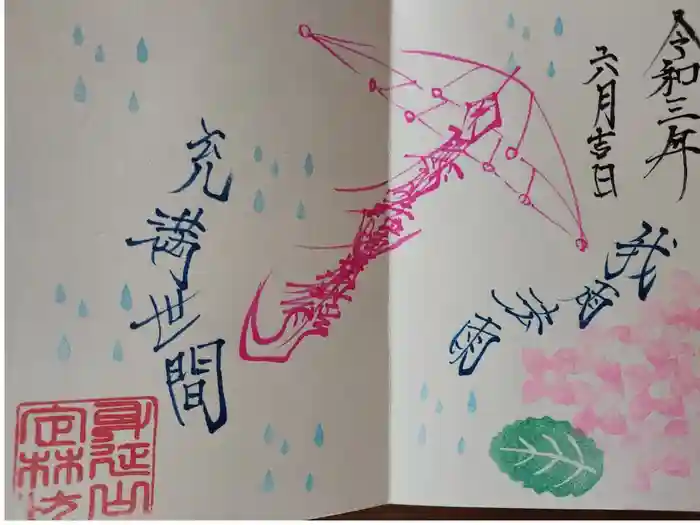 令和三年
六月吉日
我雨法雨
充満世間
身延山
定林坊